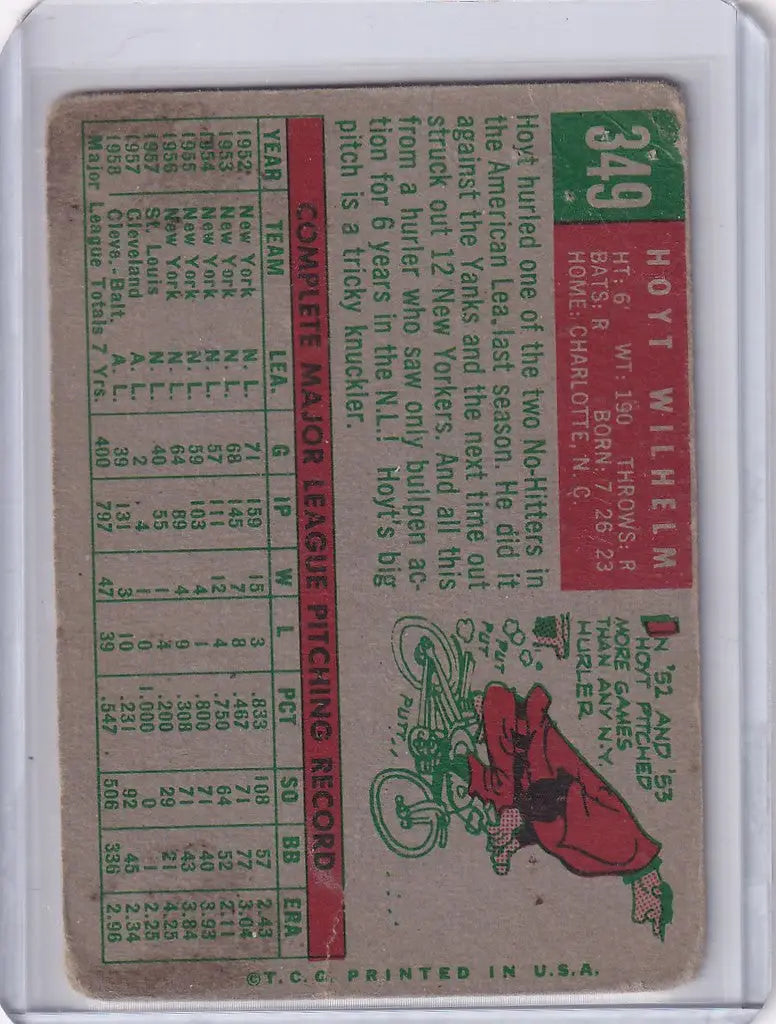 349
HOYT WILHELM
HT: 6' WT: 190 THROWS: R
BATS: R BORN: 7/26/23
HOME: CHARLOTTE, N.C.
Hoyt hurled one of the two No-Hitters in
the American Lea. last season. He did it
against the Yanks and the next time out
struck out 12 New Yorkers. And all this
from a hurler who saw only bullpen ac-
tion for 6 years in the N.L.! Hoyt's big
pitch is a tricky knuckler.
IN '52 AND '53
HOYT PITCHED
MORE GAMES
THAN ANY N.Y.
HURLER
PUT
PUT
PUTT..
COMPLETE MAJOR LEAGUE PITCHING RECORD
YEAR TEAM LEA. G IP W L PCT SO BB ERA
1952 New York N. L. 71 159 15 3 .833 108 57 2.43
1953 New York N. L. 68 145 7 8 .467 71 77 3.04
1954 New York N. L. 57 111 12 4 .750 64 52 2.11
1955 New York N. L. 59 103 4 1 .800 71 40 3.93
1956 New York N. L. 64 89 4 9 .308 71 43 3.84
1957 St. Louis N. L. 40 55 1 4 .200 29 21 4.25
1957 Cleveland A. L. 2 4 1 0 1.000 0 1 2.25
1958 Cleve.-Balt. A. L. 39 131 3 10 .231 92 45 2.34
Major League Totals 7 Yrs. 400 797 47 39 .547 506 336 2.96
©T.C.G. PRINTED IN U.S.A.